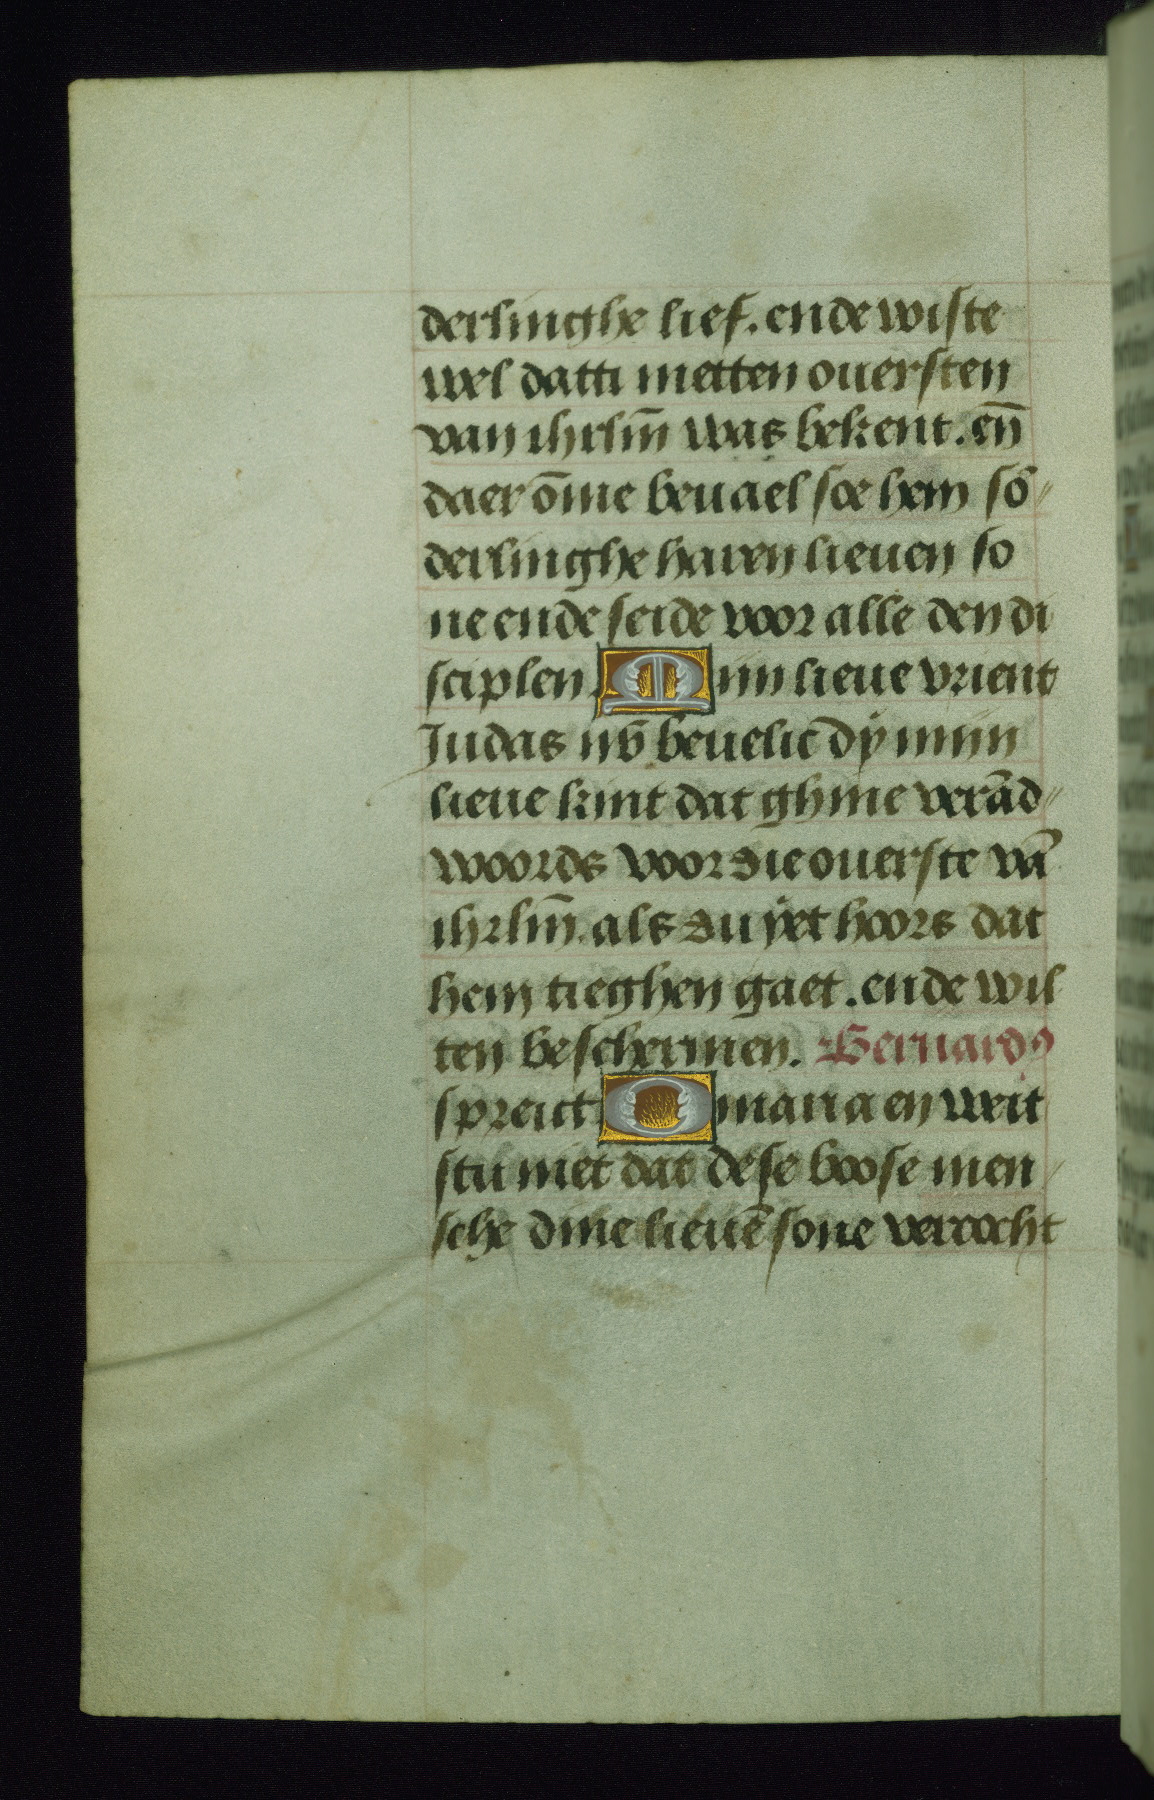 derlinghe lief. ende wiste
wel datti metten ouersten
van ihrlm̄ was bekent. en̄
daer ōme beuael soe hem sō
derlinghe haren lieuen so
ne ende seide voor alle den di
sciplen Mijn lieue vrient
Judas nv̄ beuelic dy mijn
lieue kint dat ghine verād
woords voor die ouerste vā
ihrlm̄. als du yet hoors dat
hem tieghen gaet. ende wil
ten beschermen. Bernardꝰ
spreict O maria en weit
stu niet dat dese boose men
sche dine lieuē sone vercocht